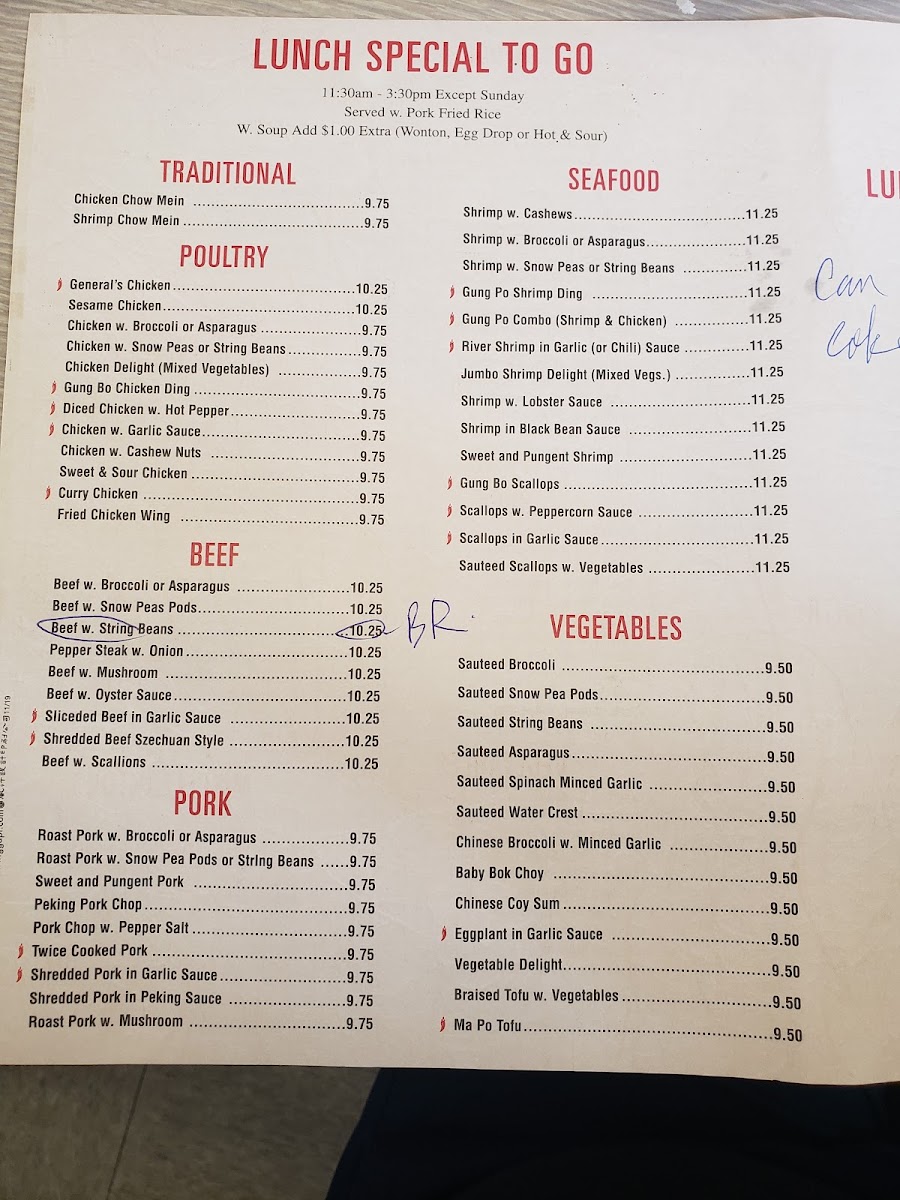 LUNCH SPECIAL TO GO
11:30am - 3:30pm Except Sunday
Served w. Pork Fried Rice
W. Soup Add $1.00 Extra (Wonton, Egg Drop or Hot & Sour)
TRADITIONAL
Chicken Chow Mein 9.75
Shrimp Chow Mein 9.75
POULTRY
General's Chicken 10.25
Sesame Chicken 10.25
Chicken w. Broccoli or Asparagus 9.75
Chicken w. Snow Peas or String Beans 9.75
Chicken Delight (Mixed Vegetables) 9.75
Gung Bo Chicken Ding 9.75
Diced Chicken w. Hot Pepper 9.75
Chicken w. Garlic Sauce 9.75
Chicken w. Cashew Nuts 9.75
Sweet & Sour Chicken 9.75
Curry Chicken 9.75
Fried Chicken Wing 9.75
BEEF
Beef w. Broccoli or Asparagus 10.25
Beef w. Snow Peas Pods 10.25
Beef w. String Beans 10.25 BR.
Pepper Steak w. Onion 10.25
Beef w. Mushroom 10.25
Beef w. Oyster Sauce 10.25
Sliceded Beef in Garlic Sauce 10.25
Shredded Beef Szechuan Style 10.25
Beef w. Scallions 10.25
PORK
Roast Pork w. Broccoli or Asparagus 9.75
Roast Pork w. Snow Pea Pods or StrIng Beans 9.75
Sweet and Pungent Pork 9.75
Peking Pork Chop 9.75
Pork Chop w. Pepper Salt 9.75
Twice Cooked Pork 9.75
Shredded Pork in Garlic Sauce 9.75
Shredded Pork in Peking Sauce 9.75
Roast Pork w. Mushroom 9.75
SEAFOOD
Shrimp w. Cashews 11.25
Shrimp w. Broccoli or Asparagus 11.25
Shrimp w. Snow Peas or String Beans 11.25
Gung Po Shrimp Ding 11.25
Gung Po Combo (Shrimp & Chicken) 11.25
River Shrimp in Garlic (or Chili) Sauce 11.25
Jumbo Shrimp Delight (Mixed Vegs.) 11.25
Shrimp w. Lobster Sauce 11.25
Shrimp in Black Bean Sauce 11.25
Sweet and Pungent Shrimp 11.25
Gung Bo Scallops 11.25
Scallops w. Peppercorn Sauce 11.25
Scallops in Garlic Sauce 11.25
Sauteed Scallops w. Vegetables 11.25
VEGETABLES
Sauteed Broccoli 9.50
Sauteed Snow Pea Pods 9.50
Sauteed String Beans 9.50
Sauteed Asparagus 9.50
Sauteed Spinach Minced Garlic 9.50
Sauteed Water Crest 9.50
Chinese Broccoli w. Minced Garlic 9.50
Baby Bok Choy 9.50
Chinese Coy Sum 9.50
Eggplant in Garlic Sauce 9.50
Vegetable Delight 9.50
Braised Tofu w. Vegetables 9.50
Ma Po Tofu 9.50
LU
Can
Cok